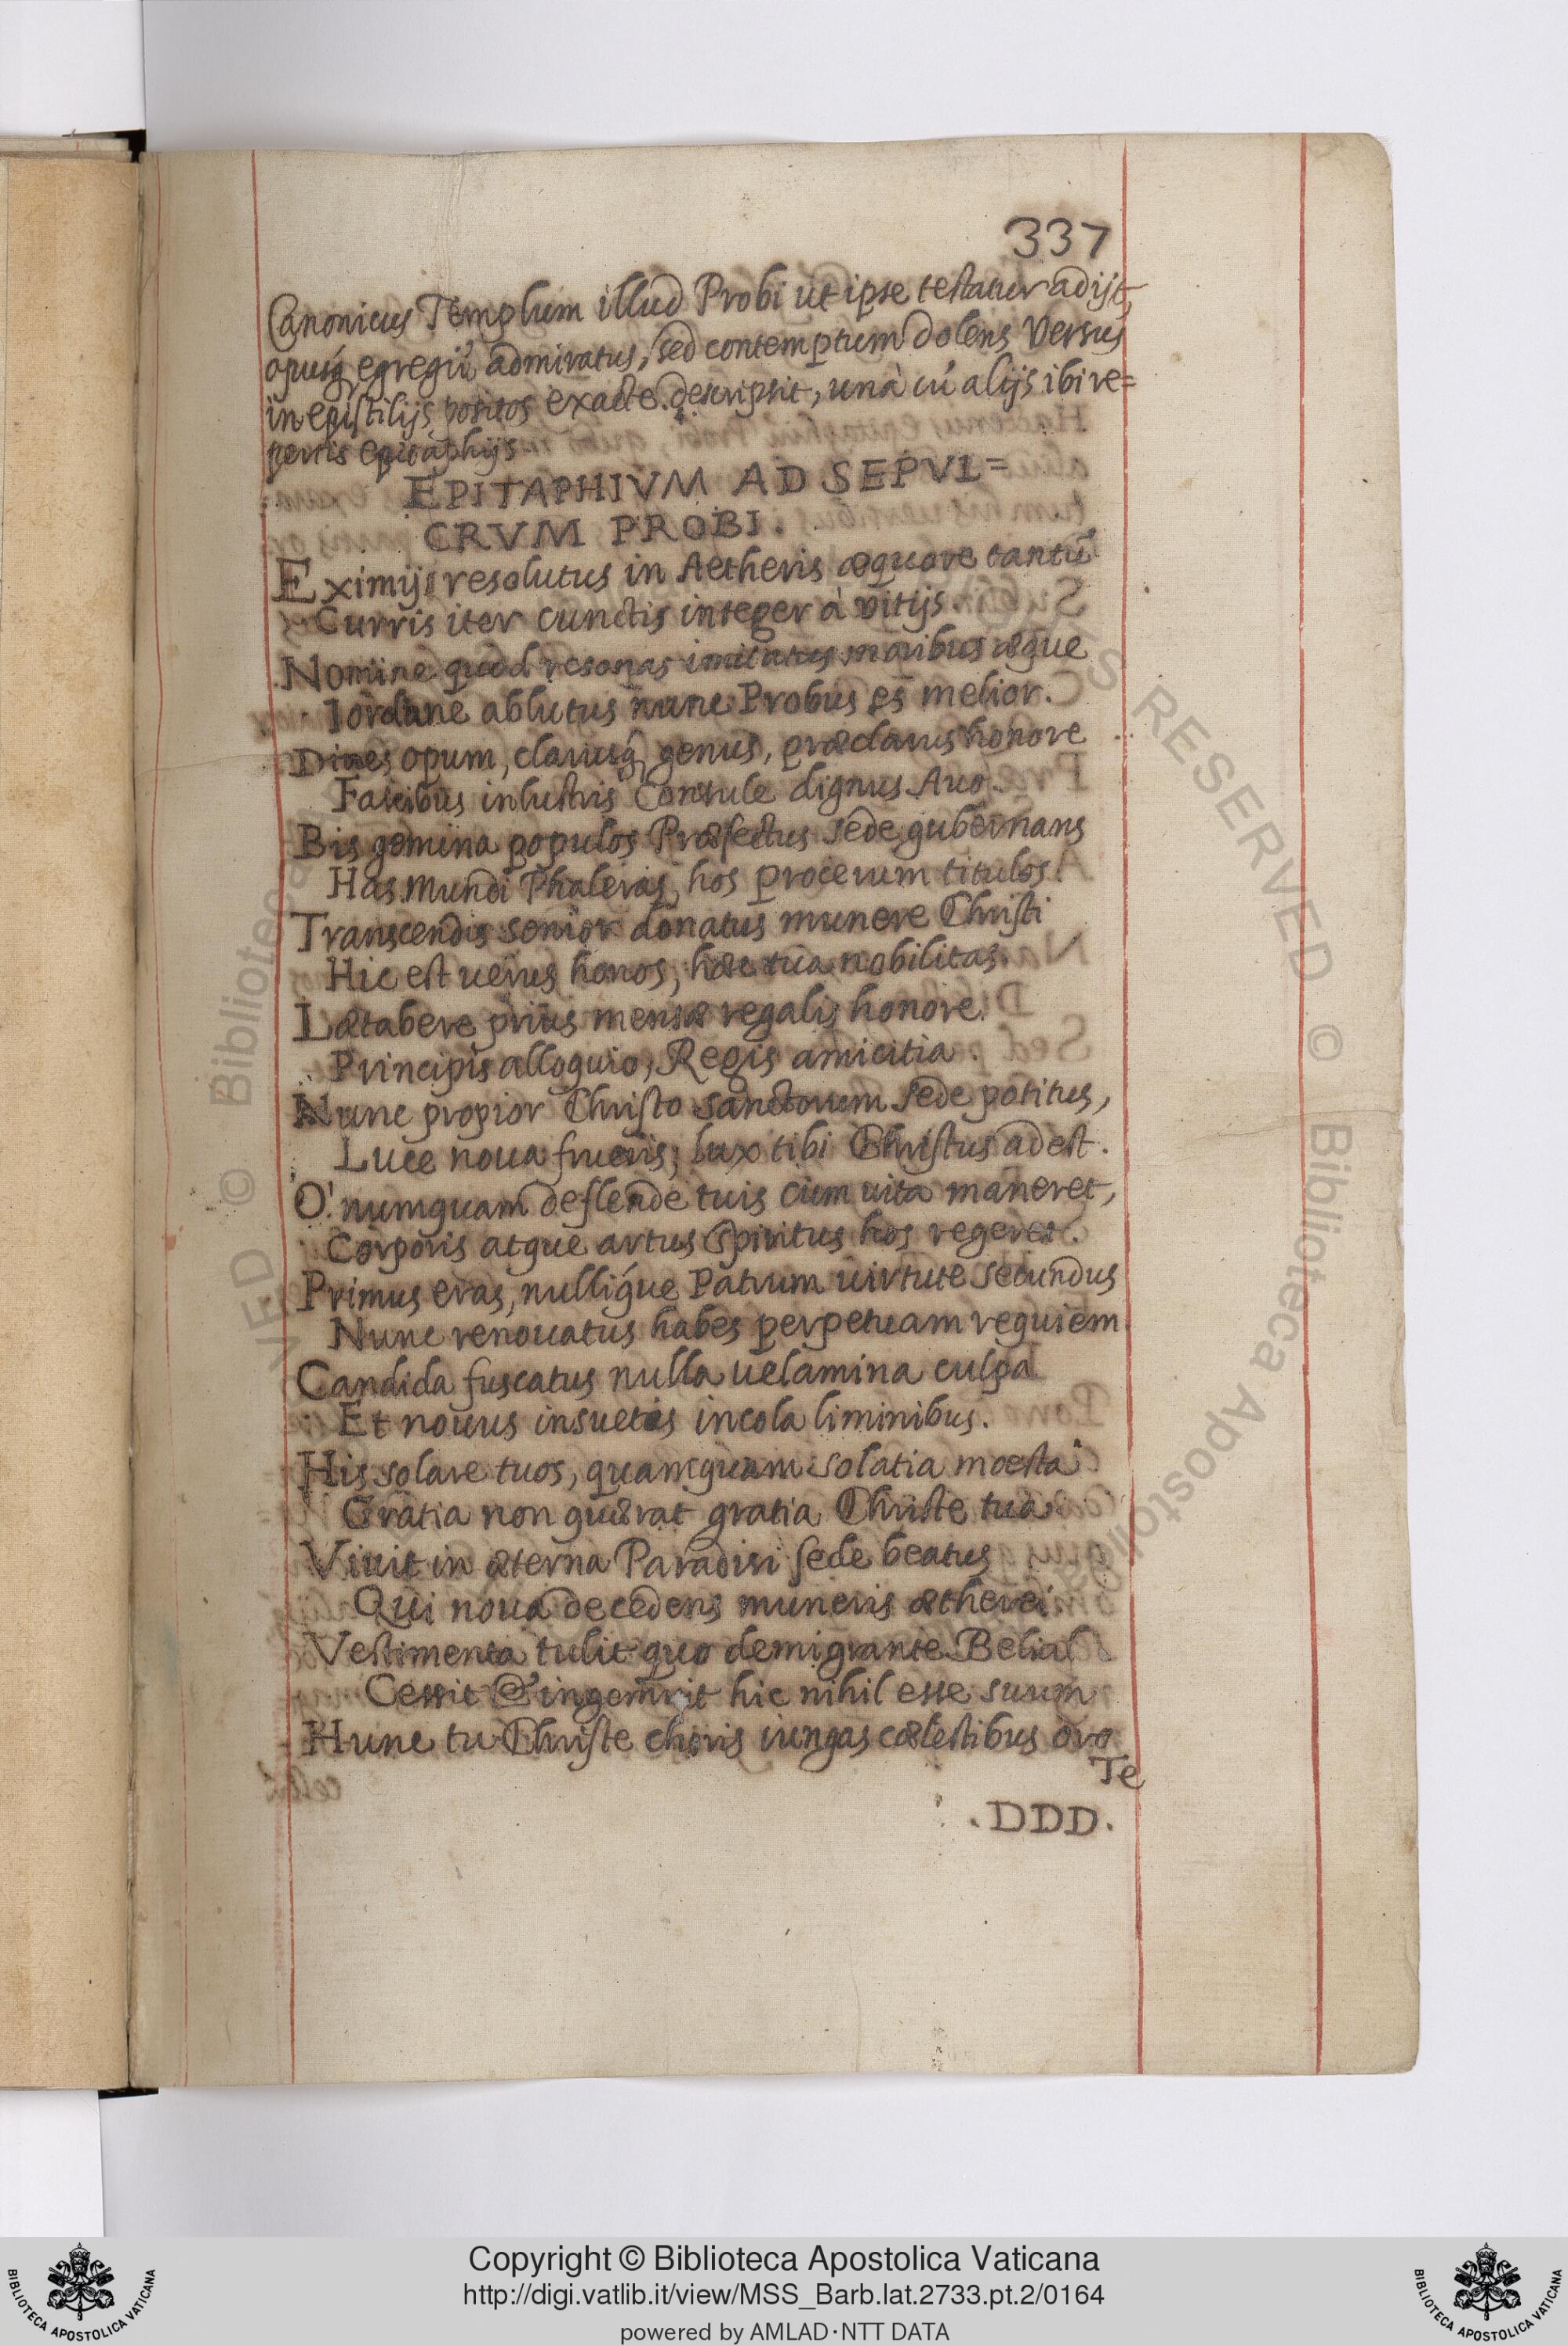 337
Canonicus Templum illud Probi ut ipse testatur adijt,
opusq́ egregiū admiratus, sed contemptum dolens Versus
in epistilijs positos exacte descripsit, unà cū alijs ibi re=
pertis epitaphijs.
EPITAPHIVM AD SEPVL=
CRVM PROBI.
Eximijs resolutus in Aetheris æquore tantū
Curris iter cunctis integer à vitijs.
Nomine quod resonas imitatus moribus æque
Iordane ablutus nunc Probus es melior.
Dives opum, clarusq́ genus, præclarus honore
Fascibus inlustris Consule dignus Auo.
Bis gemina populos Præfectus sede gubernans
Has mundi Phaleras, hos procerum titulos
Transcendis senior donatus munere Christi
Hic est uerus honos, hæc tua nobilitas.
Lætabere prius mensæ regalis honore.
Principis alloquio, Regis amicitia.
Nunc propior Christo sanctorum sede potitus,
Luce noua frueris; lux tibi Christus adest.
O! numquam deflende tuis cum uita maneret,
Corporis atque artus Spiritus hos regeret.
Primus eras, nullíque Patrum uirtute secundus
Nunc renouatus habes perpetuam requiem
Candida fuscatus nulla uelamina culpa
Et nouus insuetis incola liminibus.
His solare tuos, quamquam solatia moesta
Gratia non quærat gratia Christe tua
Viuit in æterna Paradisi sede beatus
Qui noua decedens muneris ætherei
Vestimenta tulit quo demigrante Belial
Cessit & ingemuit hic nihil esse suum
Hunc tu Christe choris iungas cælestibus oro
Te
.DDD.
Copyright © Biblioteca Apostolica Vaticana
http://digi.vatlib.it/view/MSS_Barb.lat.2733.pt.2/0164
powered by AMLAD·NTT DATA
BIBLIOTECA APOSTOLICA VATICANA
BIBLIOTECA APOSTOLICA VATICANA